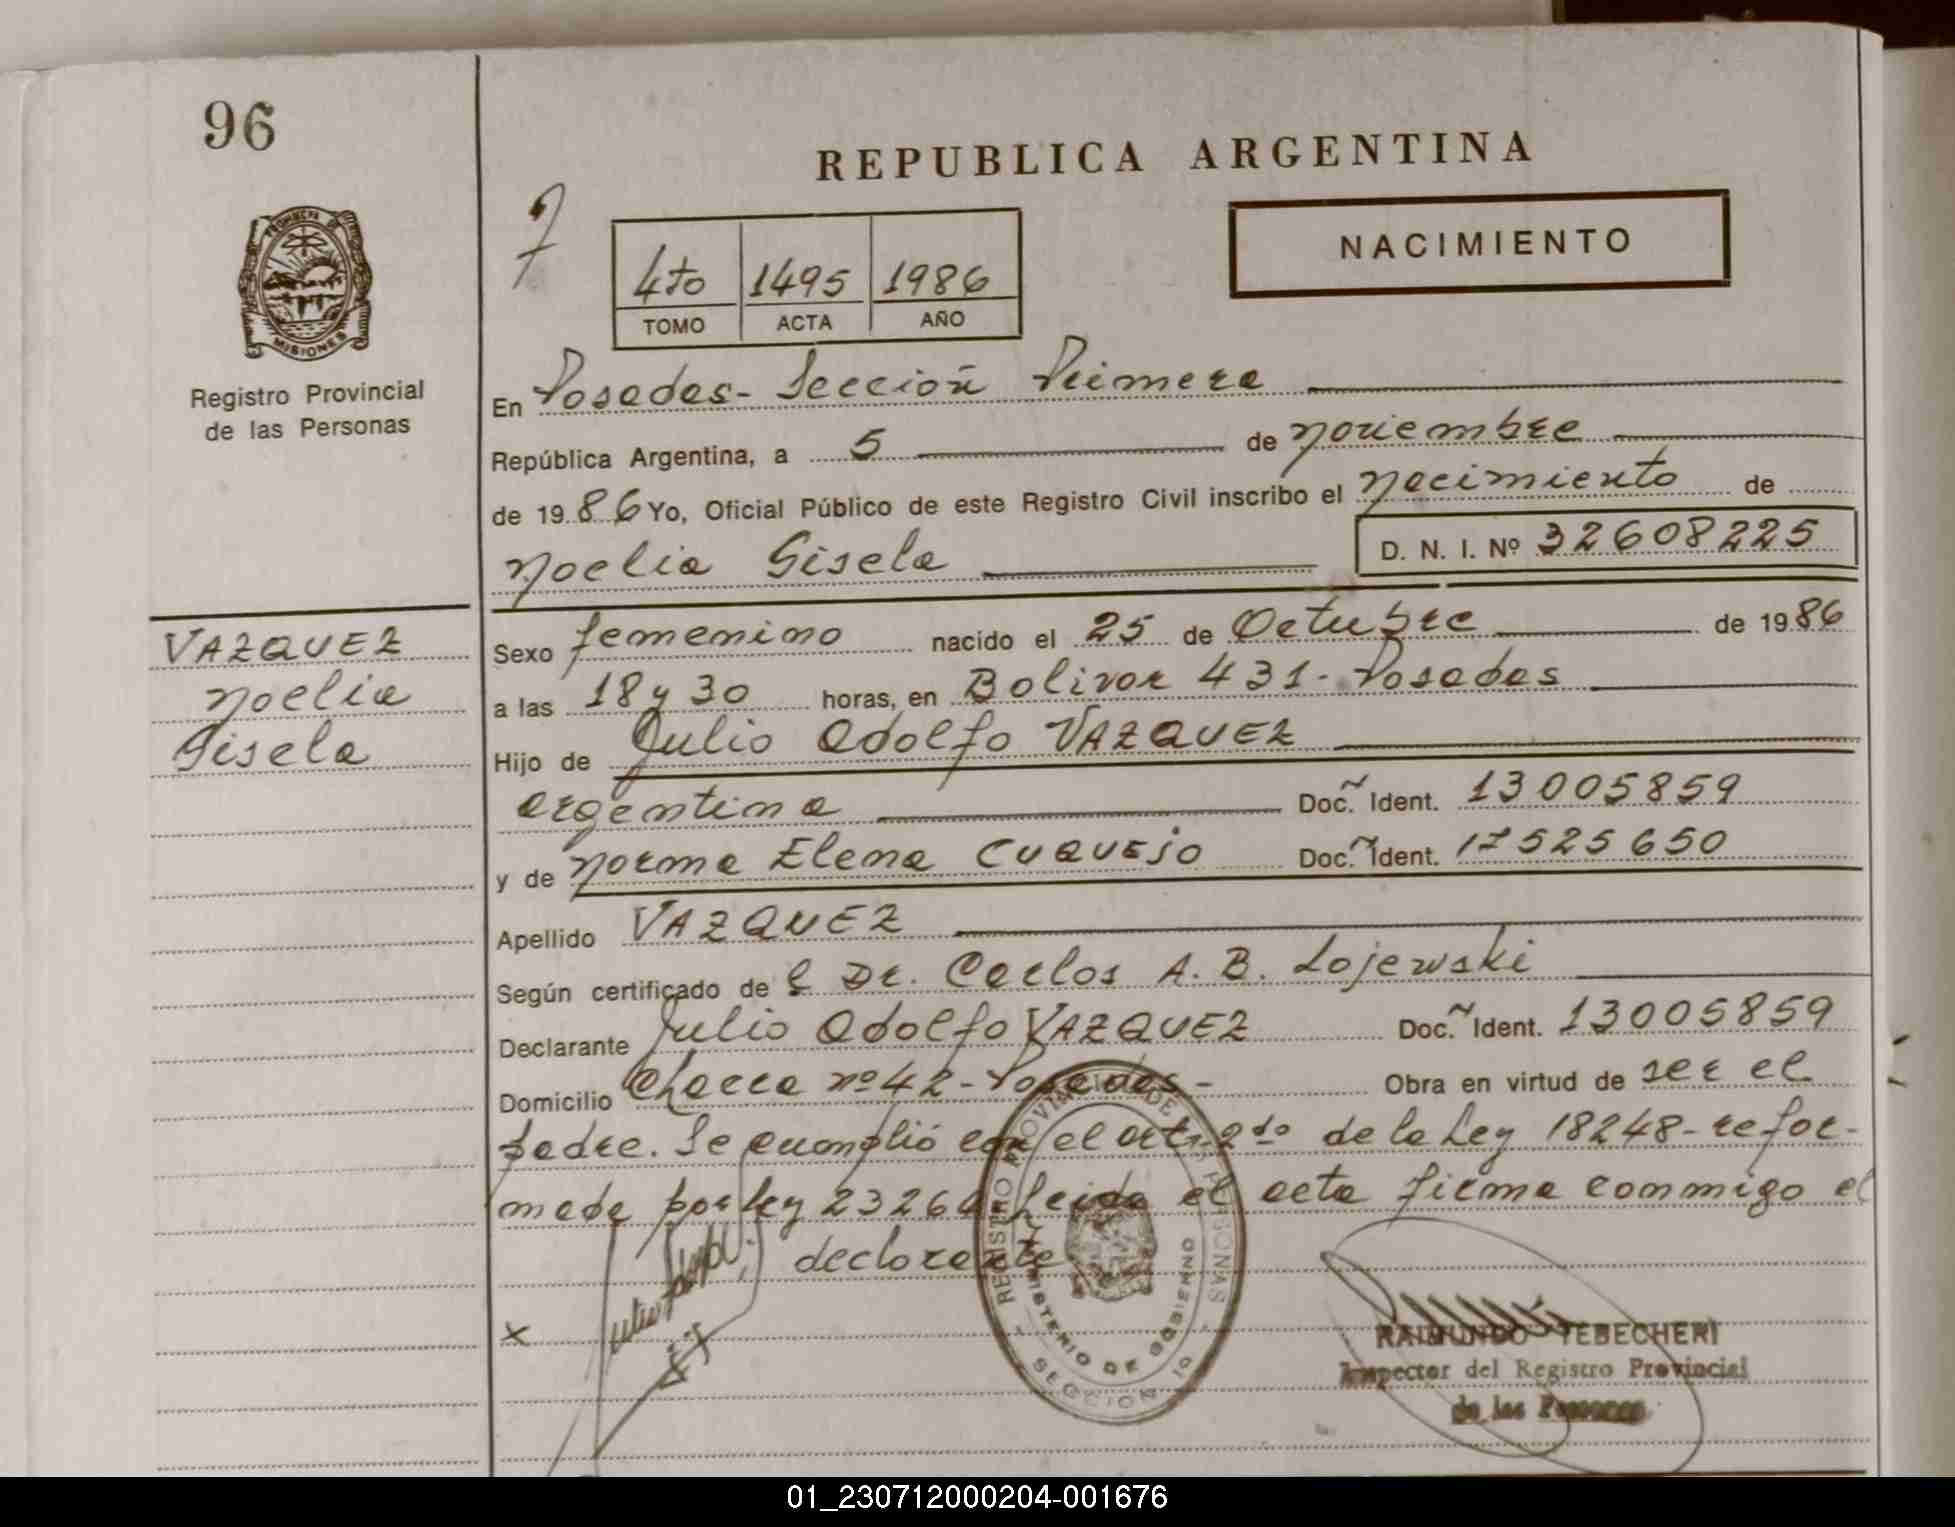 96
REPUBLICA ARGENTINA
PROVINCIA DE
MISIONES
Registro Provincial
de las Personas
4to 1495 1986
TOMO ACTA AÑO
NACIMIENTO
En Posadas - Sección Primera
República Argentina, a 5 de Noviembre
de 1986 Yo, Oficial Público de este Registro Civil inscribo el Nacimiento de
Noelia Gisela D. N. I. Nº 32608225
VAZQUEZ
Noelia
Gisela
Sexo femenino nacido el 25 de Octubre de 1986
a las 18 y 30 horas, en Bolivar 431 - Posadas
Hijo de Julio Adolfo VAZQUEZ
argentina Doc. Ident. 13005859
y de Norma Elena CUQUEJO Doc. Ident. 17525650
Apellido VAZQUEZ
Según certificado de Dr. Carlos A. B. Lojewski
Declarante Julio Adolfo VAZQUEZ Doc. Ident. 13005859
Domicilio Chacra nº 42 - Posadas - Obra en virtud de ser el
padre. Se cumplió con el art. 2do de la Ley 18248 - refor-
mada por Ley 23264 Leida el acta firma conmigo el
declarante
x
REGISTRO PROVINCIAL DE LAS PERSONAS
MINISTERIO DE GOBIERNO
SECCION 1a
RAIMUNDO TEBECHERI
Inspector del Registro Provincial
de las Personas
01_230712000204-001676